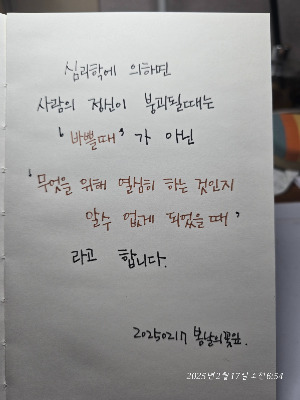 심리학에 의하면
사람의 정신이 붕괴될때는
'바쁠때'가 아닌
'무엇을 위해 열심히 하는 것인지
알수 없게 되었을 때'
라고 합니다.
20250217 봄날의꽃잎.
2025년2월17일 오전6:54